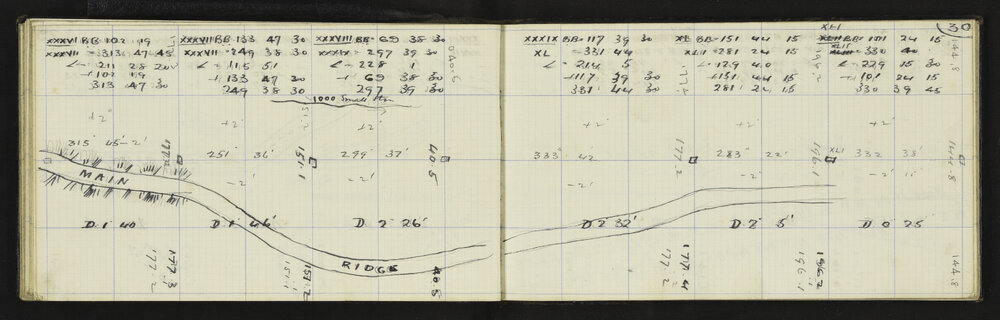 30
XXXVI BB-102 19
XXXVII -313 47 45
∠- 211 28 20
+102 19
313 47 30
XXXVII BB-133 47 30
XXXVIII -249 38 30
∠- 115 51
+133 47 30
249 38 30
XXXVIII BB-69 38 30
XXXIX -297 39 30
∠-228 1
+ 69 38 30
297 39 30
1000
040.5
XXXIX BB-117 39 30
XL -331 44
∠- 214 5
+117 39 30
331 44 30
XL BB-151 44 15
XLI -281 24 15
∠-129 40
+151 44 15
281 24 15
XLI
XLII BB-101 24 15
XLII -330 40
∠-229 15 30
+ 101 24 15
330 39 45
144.8
+2' +2' +2' +2' +2' +2'
315° 45'-2' 251° 36' 299° 37' 333° 42' 283° 22' XLI 332 38'
177.2 151.1 40.5 177.2 196.1 144.8
-2' -2' -2' -2'
MAIN
D 1° 40 D 1° 46' D 2° 26' D 2° 32' D 2° 5' D 0 25'
RIDGE
177.2 177.3 151.1 151.2 40.5 177.2 177.4 196.1 196.2 144.8